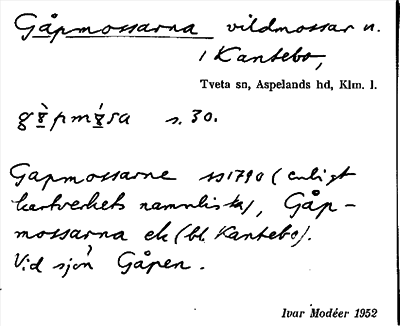 Gåpmossarna vildmossar n.
i Kantebo,
Tveta sn, Aspelands hd, Klm. l.
s. 30.
Gapmossarne 1790 (enligt
kartverkets namnlista), Gåp-
mossarna ek (bl. Kantebo).
Vid sjön Gåpen.
Ivar Modéer 1952